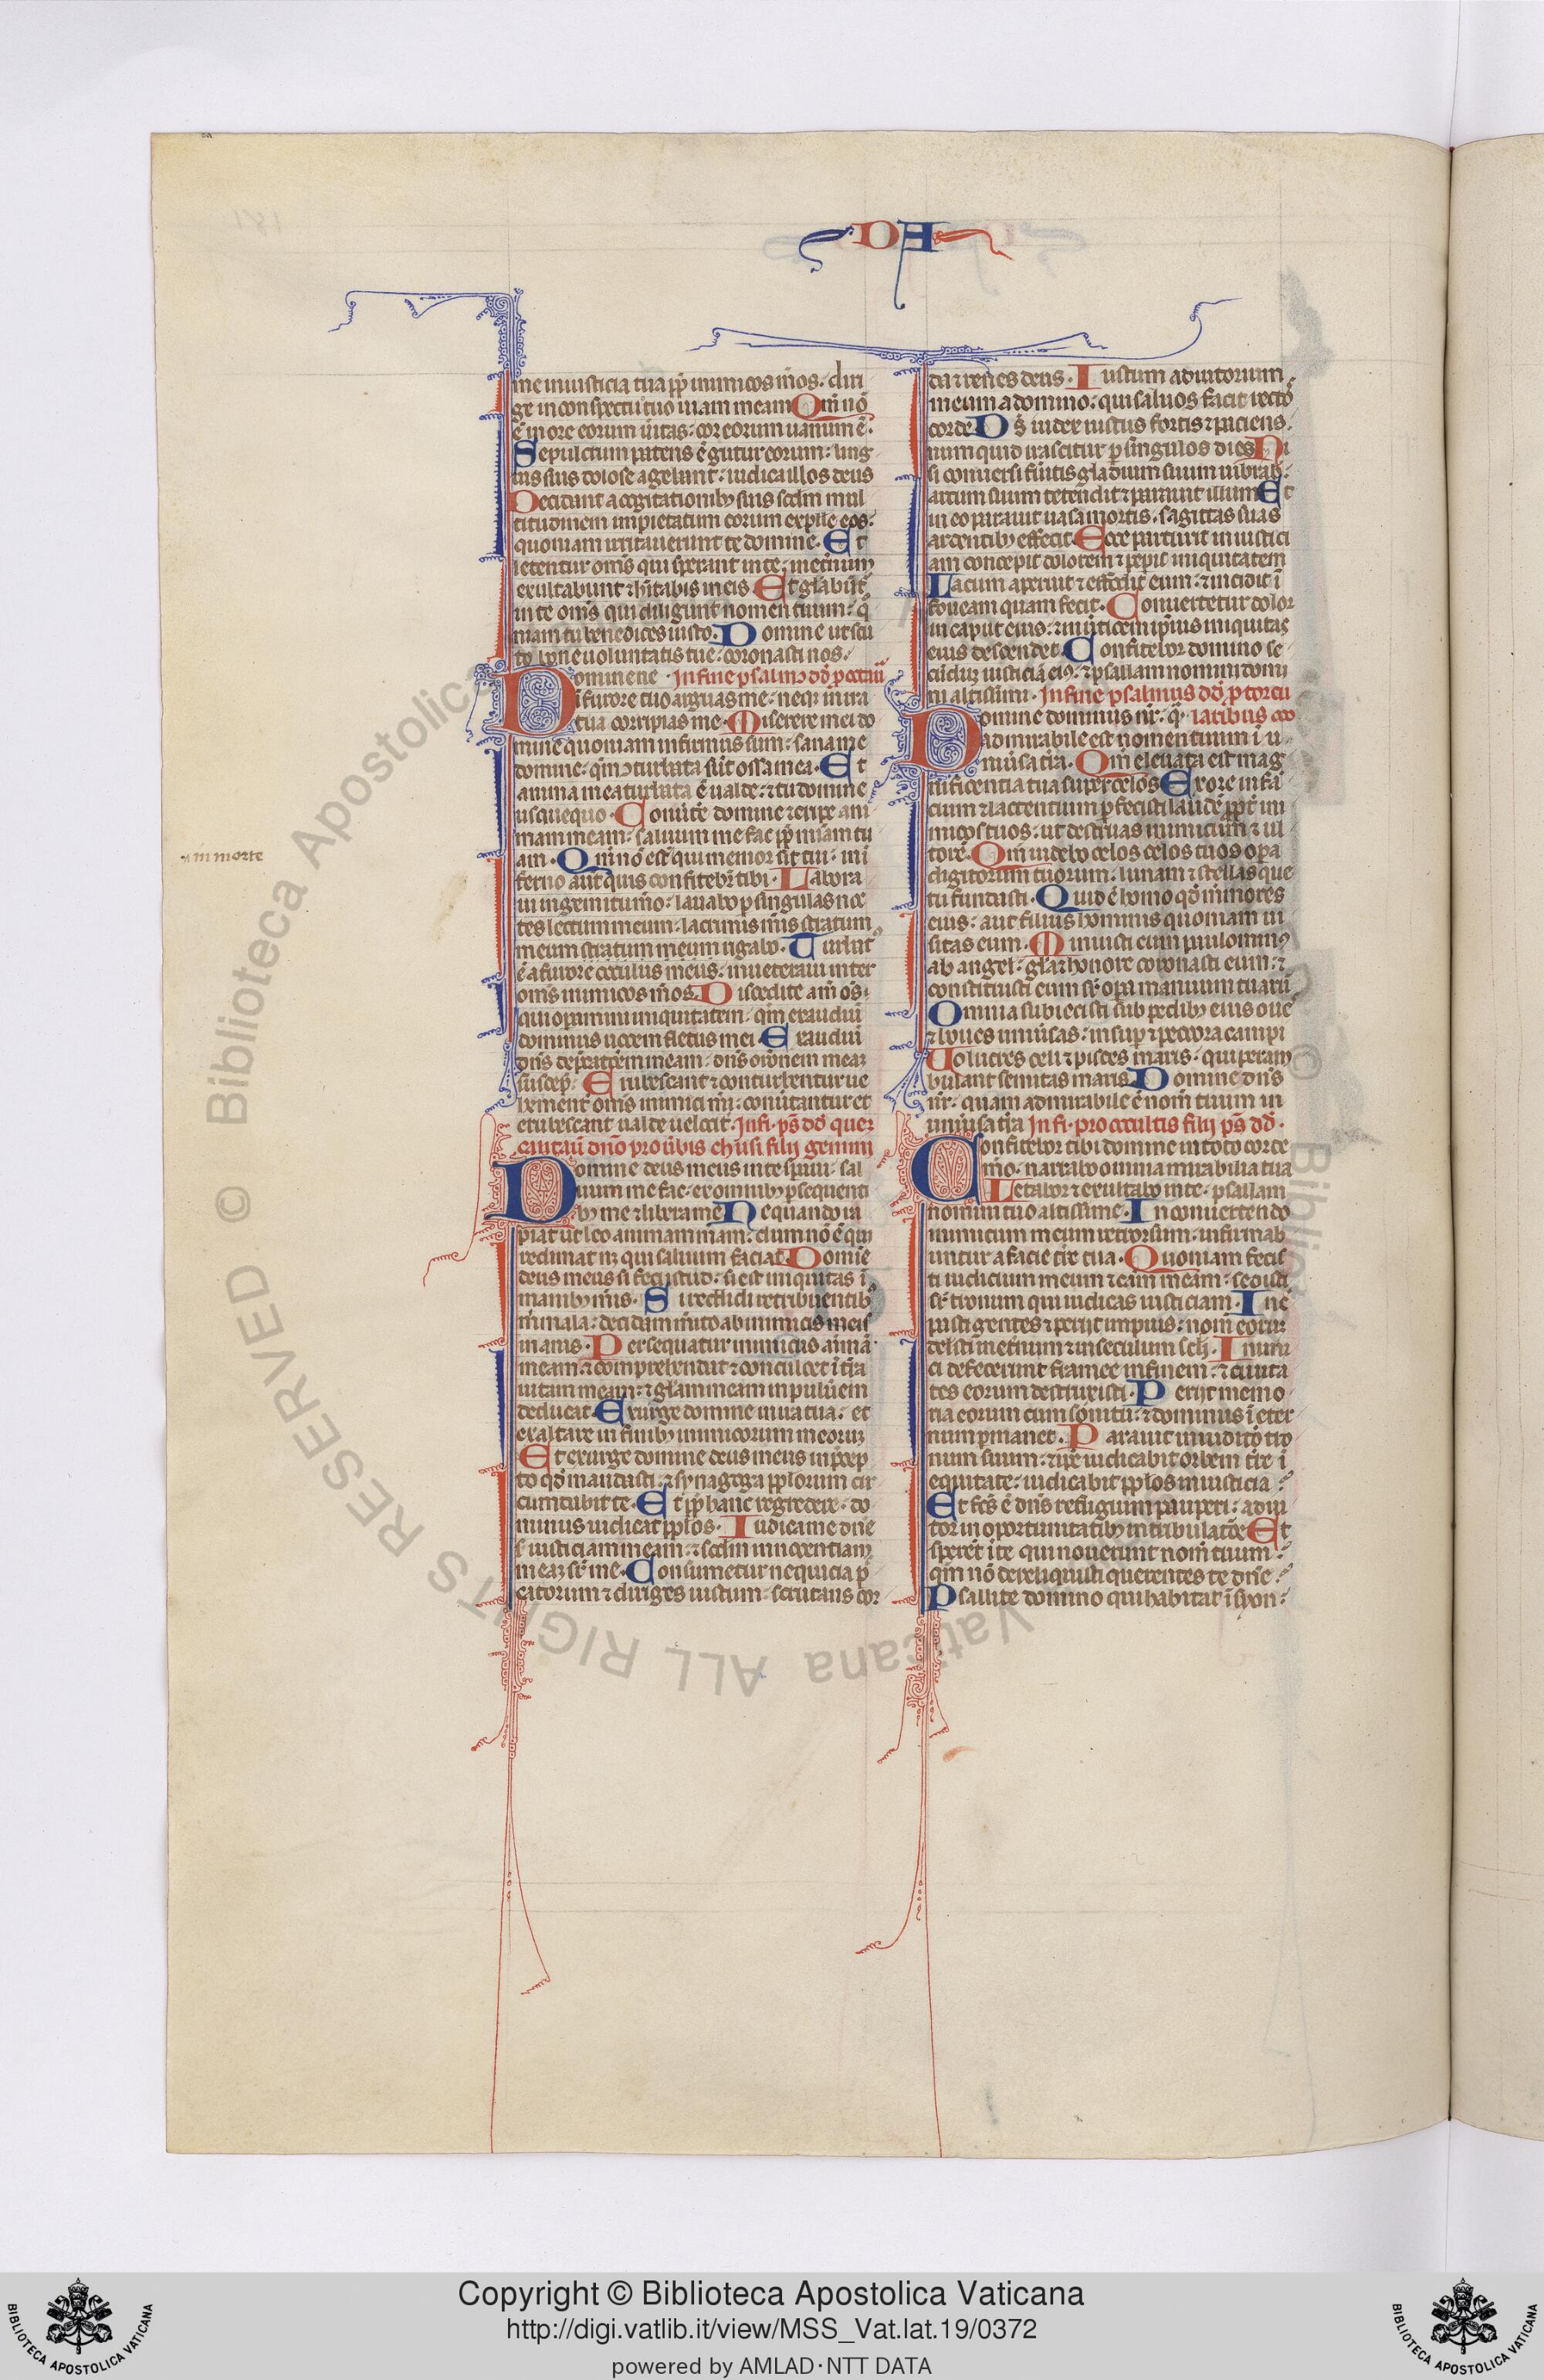 DA
me in iusticia tua ꝓp̃ inimicos m̃os. diri
ge in conspectu tuo uiam meam Qm̃ nõ
ẽ in ore eorum ũitas: cor eorum uanum ẽ.
Sepulcrum patens ẽ gutur eorum: ling
uis suis dolose agebant: iudica illos deus
Decidant a cogitationibꝫ suis scd̃m mul
titudinem impietatum eorum expelle eos:
quoniam irritauerunt te domine. Et
letentur om̃s qui sperant in te: in et̃num
exultabunt ⁊ hĩtabis in eis Et gl̃abũt̃
in te om̃s qui diligunt nomen tuum: q̃
niam tu benedices iusto. Domine ut scu
to bone uoluntatis tue: coronasti nos.
Domine ne In fine psalm᷒ dd̃ ꝑ octau᷒
ĩ furore tuo arguas me: neqꝫ in ira
tua corripias me. Miserere mei do
mine quoniam infirmus sum: sana me
domine: qm̃ ↄturbata sũt ossa mea. Et
anima mea turbata ẽ ualde: ⁊ tu domine
usquequo. Conũte domine ⁊ eripe ani
mam meam: saluum me fac ꝓp̃ mĩam tu
am. Qm̃ nõ est qui memor sit tui: in ĩ
in morte
ferno aut̃ quis confitebr̃ tibi. Labora
ui in gemitu m̃o: lauabo ꝑ singulas noc
tes lectum meum: lacrimis m̃is stratum
meum stratum meum rigabo. Turbat᷒
ẽ a furore occulus meus: inueteraui inter
om̃s inimicos m̃os. Discedite a m̃ om̃s:
qui operamini iniquitatem: qm̃ exaudiui
dominus uocem fletus mei. Exaudiui
dñs dep̃cat̃oem meam: dñs or̃onem meaꝫ
suscep̃. Erubescant ⁊ conturbentur ue
hement᷒ om̃s inimici m̃i: conũtantur et
erubescant ualde uelocit̃. In fi. pš dd̃ queꝫ
cantauit dñο pro ũbis chusi filii gemini
Domine deus meus in te speraui: sal
uum me fac ex omnibꝫ ꝑsequenti
bꝫ me ⁊ libera me Nequando ra
piat ut leo animam m̃am: dum nõ ẽ qui
redimat neqꝫ qui saluum faciat. Domine
deus meus si feci istud: si est iniquitas ĩ
manibꝫ m̃is. Si reddidi retribuentibꝫ
m̃ mala: decidam m̃ito ab inimicis meis
inanis. Persequatur inimicus aĩmã
meam: ⁊ comprehendat ⁊ conculcet ĩ tr̃a
uitam meam: ⁊ gl̃am meam in puluerem
deducat. Exurge domine in ira tua: et
exaltare in finibꝫ inimicorum meorum
Et exurge domine deus meus in p̃cep
to qd̃ mandasti: ⁊ synagoga ppl̃orum cir
cumdabit te. Et ꝓp̃ hanc regredere: do
minus iudicat ppl̃os. Iudica me dñe
s̃ iusticiam meam: ⁊ scd̃m innocentiam
meaꝫ sr̃ me. Consumetur nequicia p̃
catorum ⁊ diriges iustum: scrutans cor
da ⁊ renes deus. Iustum adiutorium
meum a domino: qui saluos facit recto
corde. Dš iudex iustus fortis ⁊ paciens:
numquid irascitur ꝑ singulos dies Ni
si conuersi fũitis gladium suum uibrab:
arcum suum tetendit ⁊ parauit illum Et
in eo parauit uasa mortis: sagittas suas
ardentibꝫ effecit. Ecce parturit iniustici
am concepit dolorem ⁊ pepit iniquitatem
Lacum aperuit ⁊ effodit eum: ⁊ incidit ĩ
foueam quam fecit. Conuertetur dolor
in caput eius: ⁊ in ũticem ip̃ius iniquitas
eius descendet. Confitebor domino se
cũduꝫ iusticiã ei᷒: ⁊ psallam nomini domi
ni altissimi. In fine psalmus dd̃ ꝑ torcu
Domine dominus nr̃: q̃ laribus
admirabile est nomen tuum ĩ u
niũsa tr̃a. Qm̃ eleuata est mag
nificentia tua super celos Ex ore infã
cium ⁊ lactentium ꝑfecisti laudẽ ꝓp̃t᷒ ini
micos tuos: ut destruas inimicum ⁊ ul
torẽ. Qm̃ uidebo celos tuos opa
digitorum tuorum: lunam ⁊ stellas que
tu fundasti. Quid ẽ homo qd̃ m̃mor es
eius: aut filius hominis quoniam ui
sitas eum. Minuisti eum paulomin᷒
ab angel̃: gl̃a ⁊ honore coronasti eum: ⁊
constituisti eum sr̃ opa manuum tuarũ
Omnia subiecisti sub pedibꝫ eius oues
⁊ boues uniũsas: insup ⁊ pecora campi
Uolucres celi ⁊ pisces maris: qui peram
bulant semitas maris Domine dñs
nr̃: quam admirabile ẽ nom̃ tuum in
uniũsa tr̃a In fi. pro occultis filii pš dd̃.
Confitebor tibi domine in toto corde
m̃o: narrabo omnia mirabilia tua
Letabor ⁊ exultabo in te: psallam
nomini tuo altissime. In conuertendo
inimicum meum retrorsum: infirmab
untur ⁊ peribunt a facie tua. Quoniam fecis
ti iudicium meum ⁊ cãm meam: sedisti
sr̃ tronum qui iudicas iusticiam. Incre
pasti gentes ⁊ periit impius: nom̃ eoruꝫ
delesti in et̃num ⁊ in seculum sclĩ. Inimi
ci defecerunt framee in finem: ⁊ ciuita
tes eorum destruxisti. Periit memo
ria eorum cum sonitu: ⁊ dominus ĩ eter
num ꝑmanet. Parauit in iudicio tro
num suum: ⁊ ip̃e iudicabit orbem tr̃e ĩ
equitate: iudicabit ppl̃os in iusticia:
Et fcš ẽ dñs refugium pauperi: adiu
tor in oportunitatibꝫ in tribulatõe Et
sperẽt ĩ te qui nouerunt nom̃ tuum:
qm̃ nõ dereliquisti querentes te dñe:
Psallite domino qui habitat ĩ syon:
© Biblioteca Apostolica Vaticana ALL RIGHTS RESERVED
Copyright © Biblioteca Apostolica Vaticana
http://digi.vatlib.it/view/MSS_Vat.lat.19/0372
powered by AMLAD·NTT DATA
BIBLIOTECA APOSTOLICA VATICANA
BIBLIOTECA APOSTOLICA VATICANA